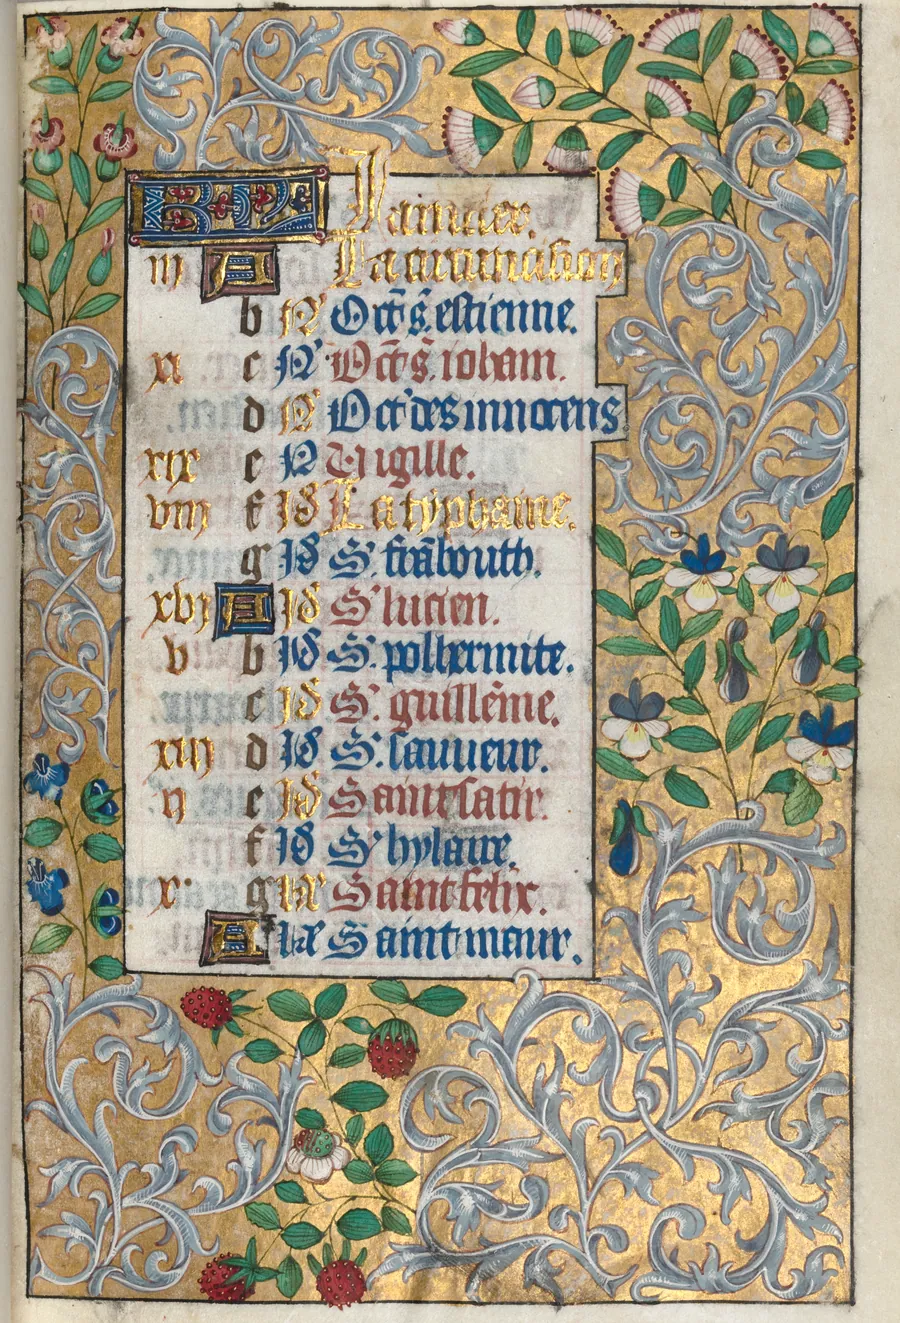 KL Januier.
iii A La circuncision
b N Oct s. estienne.
xi c N Oct s. iohan.
d N Oct des innocens
xix e N Vigille.
viii f id La typhaine.
g id S. franbourth.
xvi A id S lucien.
v b id S. polhermite.
c id S. guillême.
xiii d id S. sauueur.
ii e id Saint satir.
f id S hylaire.
x g kl Saint felix.
A kl Saint maur.